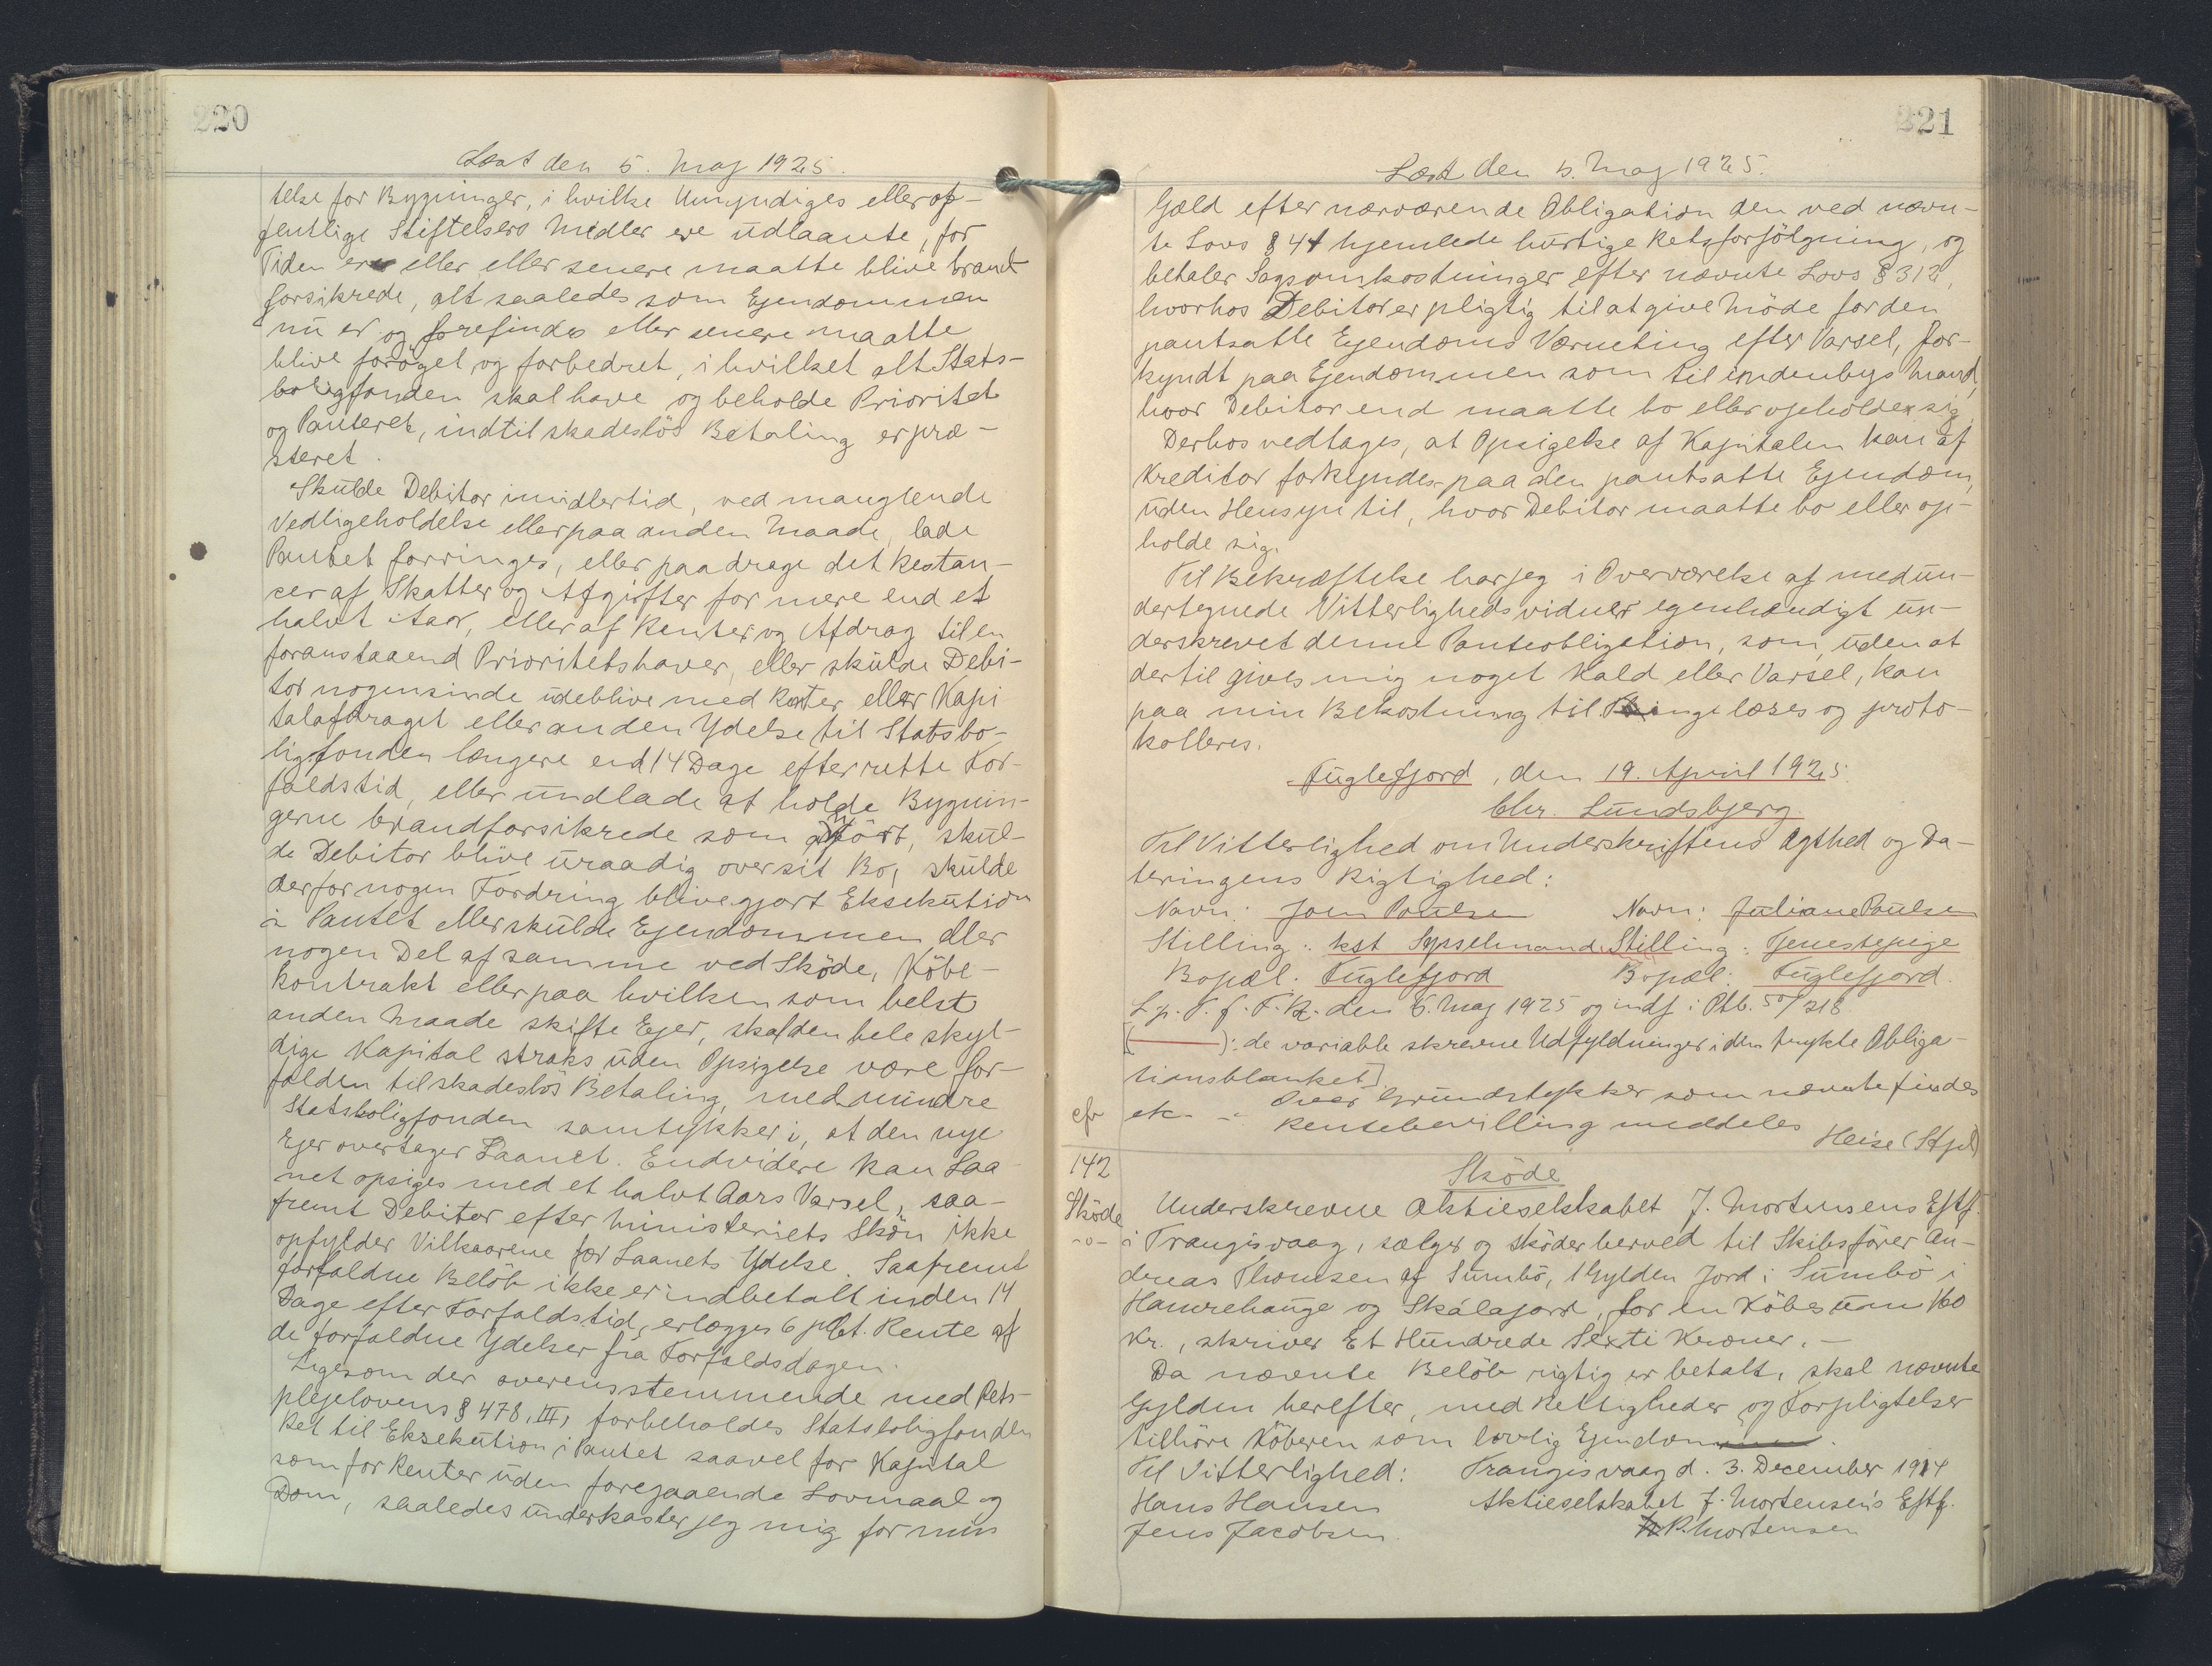 220
Læst den 5. Maj 1925.
telse for Bygninger, i hvilke Umyndiges eller of-
fentlige Stiftelsers Midler ere udlaante, for
Tiden ere eller eller senere maatte blive brand
forsikrede, alt saaledes som Ejendommen
nu er og forefindes eller senere maatte
blive forøget og forbedret, i hvilket alt Stats-
boligfonden skal have og beholde Prioritet
og Panteret, indtil skadesløs Betaling er præ-
steret.
Skulde Debitor imidlertid, ved manglende
Vedligeholdelse eller paa anden Maade, lade
Pantet forringes, eller paadrage det Restan-
cer af Skatter og Afgifter for mere end et
halvt Aar, eller af Renter og Afdrag til en
foranstaaend Prioritetshaver, eller skulde Debi-
tor nogensinde udeblive med Renter eller Kapi
talafdraget eller anden Ydelse til Statsbo-
ligfonden længere end 14 Dage efter rette For-
faldstid, eller undlade at holde Bygnin-
gerne brandforsikrede som anført, skul-
de Debitor blive uraadig over sit Bo, skulde
der for nogen Fordring blive gjort Eksekution
i Pantet eller skulde Ejendommen eller
nogen Del af samme ved Skøde, Købe-
kontrakt eller paa hvilken som helst
anden Maade skifte Ejer, skal den hele skyl-
dige Kapital straks uden Opsigelse være for-
falden til skadesløs Betaling, med mindre
Statsboligfonden samtykker i, at den nye
Ejer overtager Laanet. Endvidere kan Laa-
net opsiges med et halvt Aars Varsel, saa-
fremt Debitor efter Ministeriets Skøn ikke
opfylder Vilkaarene for Laanets Ydelse. Saafremt
forfaldne Beløb ikke er indbetalt inden 14
Dage efter Forfaldstid, erlægges 6 pCt. Rente af
de forfaldne Ydelser fra Forfaldsdagen.
Ligesom der overensstemmende med Rets-
plejelovens § 478, III, forbeholdes Statsboligfonden
Ret til Eksekution i Pantet saavel for Kapital
som for Renter uden foregaaende Lovmaal og
Dom, saaledes underkaster jeg mig for min
221
Læst den 5. Maj 1925.
Gæld efter nærværende Obligation den ved nævn-
te Lovs § 44 hjemlede hurtige Retsforfølgning, og
betaler Sagsomkostninger efter nævnte Lovs § 312,
hvorhos Debitor er pligtig til at give Møde for den
pantsatte Ejendoms Værneting efter Varsel, for-
kyndt paa Ejendommen som til indenbys Mand,
hvor Debitor end maatte bo eller opholde sig
Derhos vedtages, at Opsigelse af Kapitalen kan af
Kreditor forkyndes paa den pantsatte Ejendom,
uden Hensyn til, hvor Debitor maatte bo eller op-
holde sig.
Til Bekræftelse har jeg i Overværelse af medun-
dertegnede Vitterlighedsvidner egenhændigt un-
derskrevet denne Panteobligation, som, uden at
dertil gives mig noget Kald eller Varsel, kan
paa min Bekostning til Tinge læses og proto-
kolleres.
Fuglefjord, den 19. April 1925.
Chr. Lundsbjerg
Til Vitterlighed om Underskriftens Ægthed og Da-
teringens Rigtighed:
Navn: Joen Poulsen Navn: Juliane Poulsen
Stilling: kst Sysselmand. Stilling: Tjenestepige
Bopæl: Fuglefjord Bopæl: Fuglefjord.
L. p. T. f. F. R. den 5. Maj 1925 og indf. i Ptb. 50/218
[(———): de variable skrevne Udfyldninger i den trykte Obliga-
tionsblanket]
cfr etc - Over Grundstykker som nævnte findes
Rentebevilling meddeles Heise (Stpl)
142
Skøde
-o-
Skøde
Underskrevne Aktieselskabet J. Mortensens Eftf.
i Trangisvaag, sælger og skøder herved til Skibsfører An-
dreas Thomsen af Sumbø, 1 Gylden Jord i Sumbø i
Hamrehauge og Skálajord, for en Købesum 160
Kr., skriver Et Hundrede Sexti Kroner. —
Da nævnte Beløb rigtig er betalt, skal nævnte
Gylden herefter, med Rettigheder og Forpligtelser
tilhøre Køberen som lovlig Ejendom.
Til Vitterlighed: Trangisvaag d. 3. December 1914
Hans Hansen Aktieselskabet J. Mortensen's Eftf.
Jens Jacobsen P. Mortensen